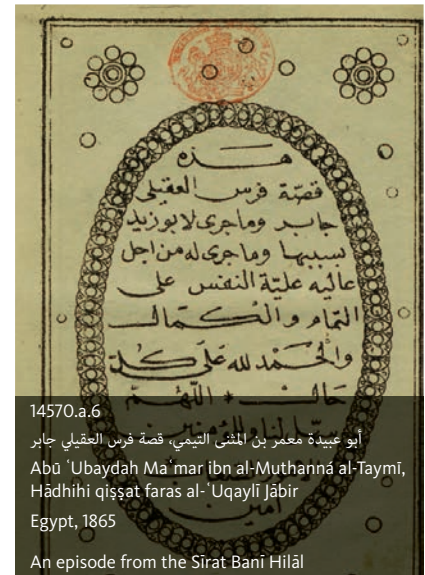 هذه
قصّة فرس العقيلى
جابر وما جرى لابو زيد
بسببها وما جرى له من اجل
عاليه عليّة النفس على
التمام والكمال
والحمد لله على كل
حال * اللهم
لنا وللمؤمنين
امين
14570.a.6
أبو عبيدة معمر بن المثنى التيمي، قصة فرس العقيلي جابر
Abū ʻUbaydah Maʻmar ibn al-Muthanná al-Taymī,
Hādhihi qiṣṣat faras al-ʻUqaylī Jābir
Egypt, 1865
An episode from the Sīrat Banī Hilāl